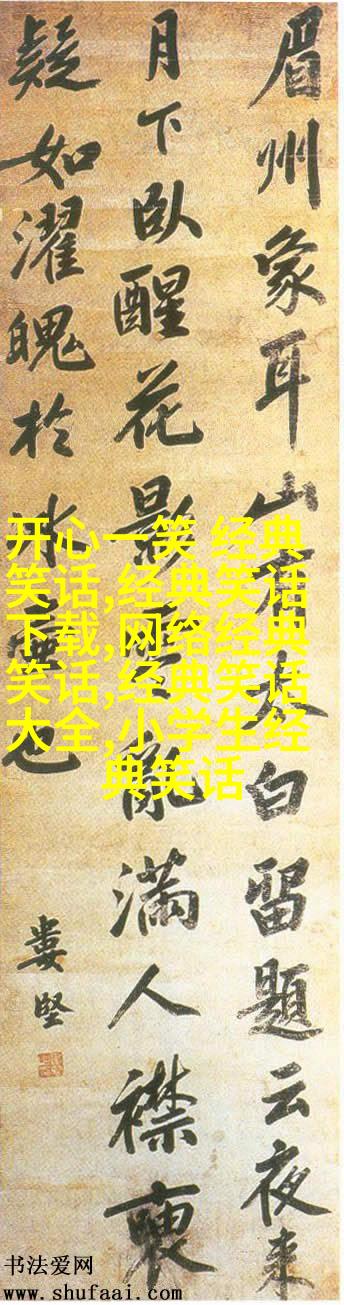 眉州象耳山有太白留題云夜来
月下臥醒花影零亂滿人襟
疑如濯魄於冰壺也
婁堅
开心一笑 经典
笑话,经典笑话
下载,网络经典
笑话,经典笑话
大全,小学生经
典笑话
书法爱网
www.shufaai.com